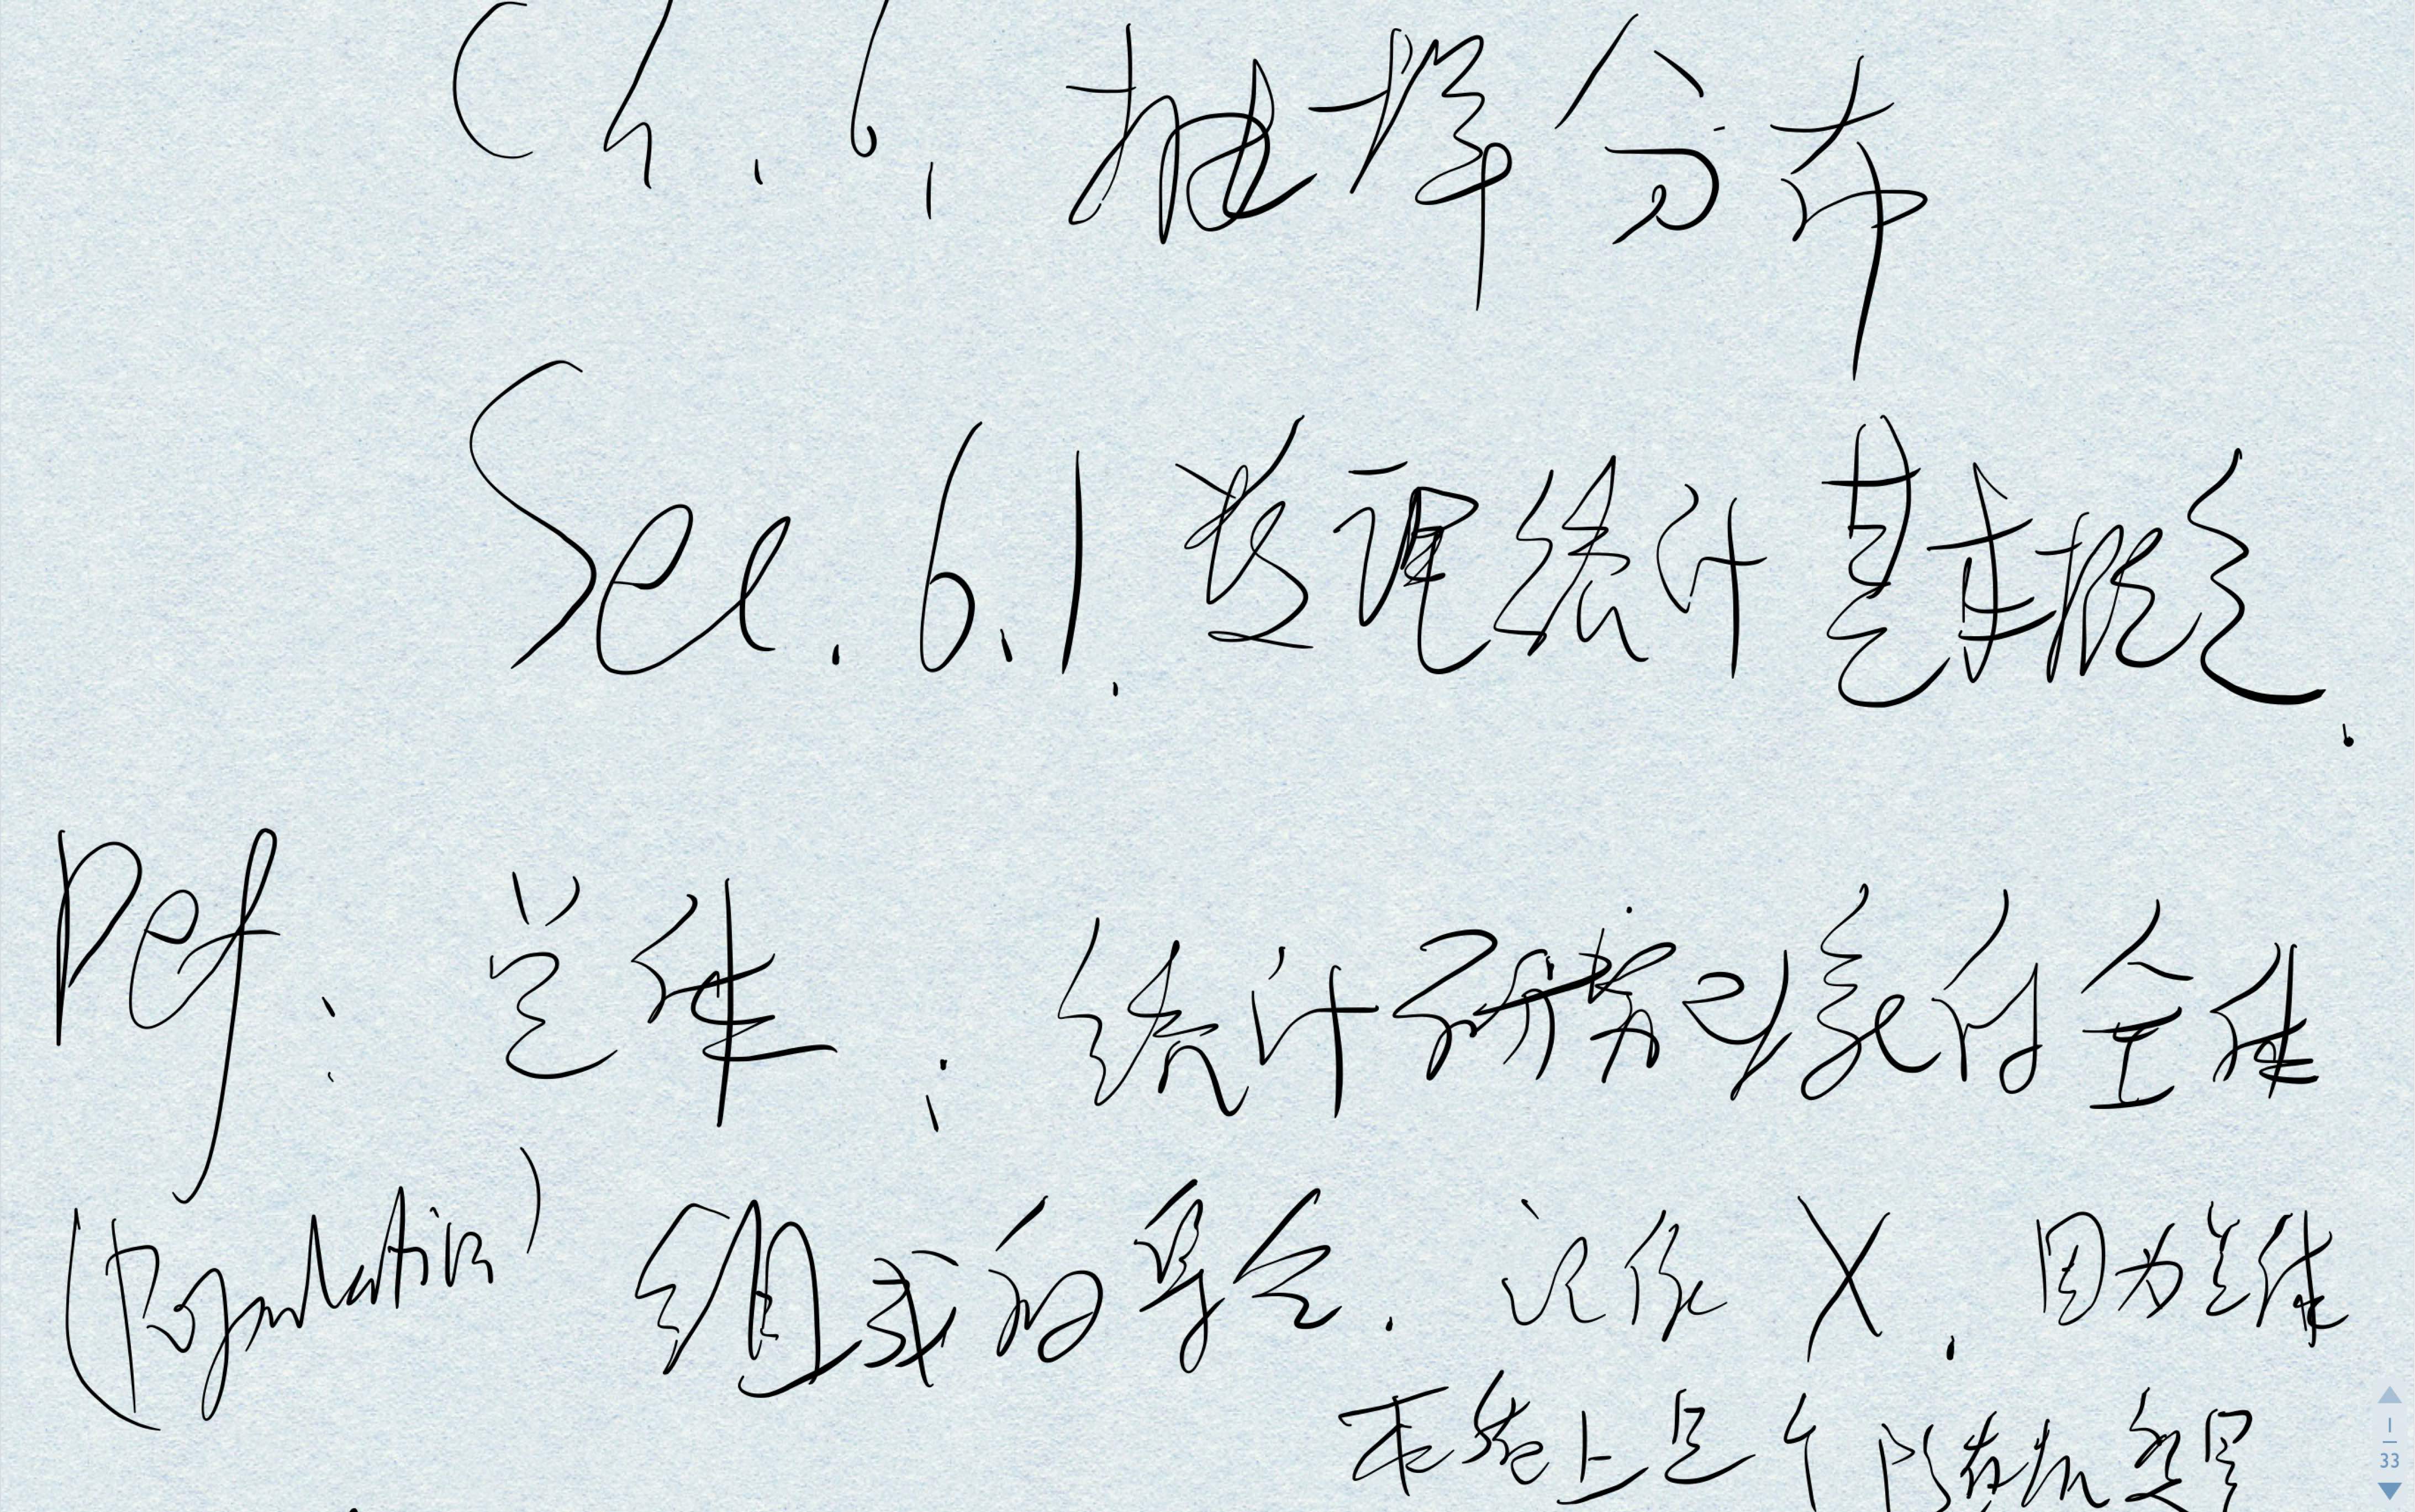 Ch. 6. 抽样分布
Sec. 6.1. 数理统计基本概念.
Def: 总体: 统计研究对象的全体
(Population) 组成的集合. 记作 X. 因为总体
本质上是个随机变量
1
33